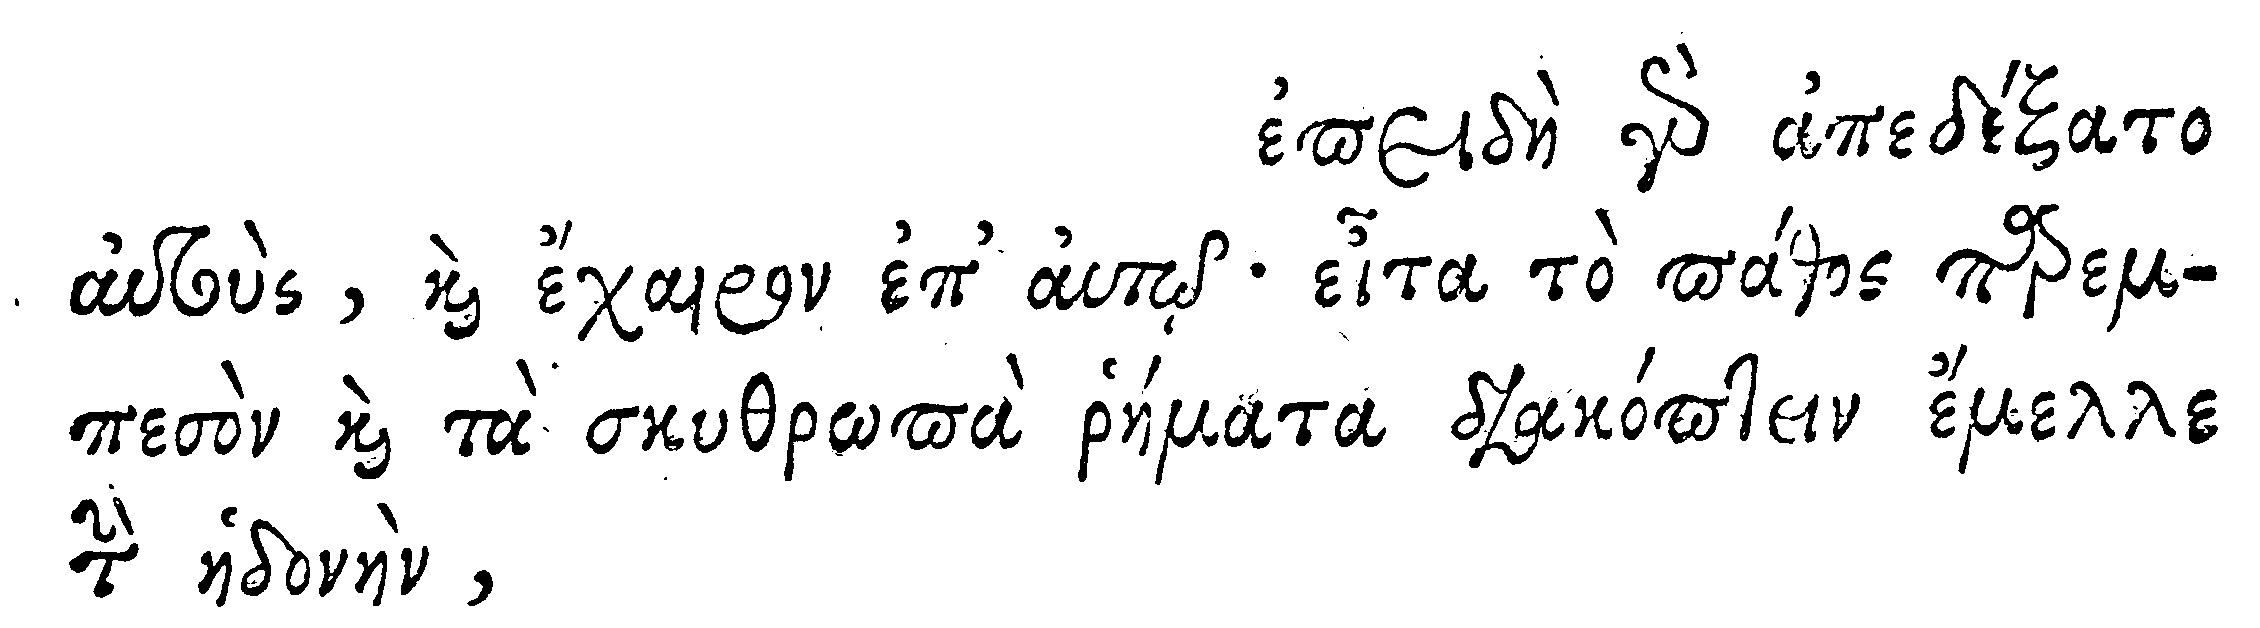 ἐπειδὴ γὰρ ἀπεδέξατο
αὐτοὺς, καὶ ἔχαιρον ἐπ' αὐτῷ· εἶτα τὸ πάθος παρεμ-
πεσὸν καὶ τὰ σκυθρωπὰ ῥήματα διακόπτειν ἔμελλε
τὴν ἡδονὴν,